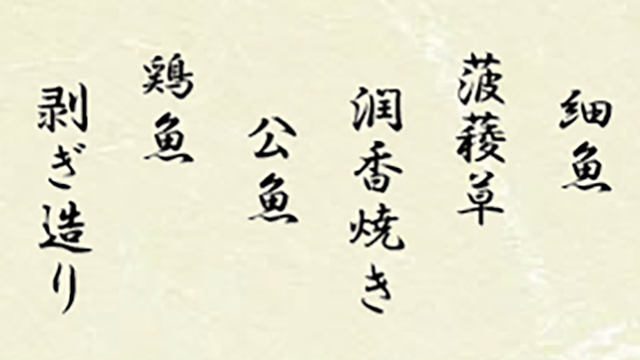 細魚
菠薐草
潤香焼き
公魚
鶏魚
剥ぎ造り